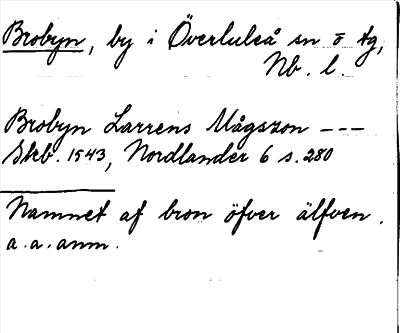 Brobyn, by i Överluleå sn ō tg,
Nb. l.
Brobyn Larrens Mågszon ---
Skb. 1543, Nordlander 6 s. 280
Namnet af bron öfver älfven.
a. a. anm.